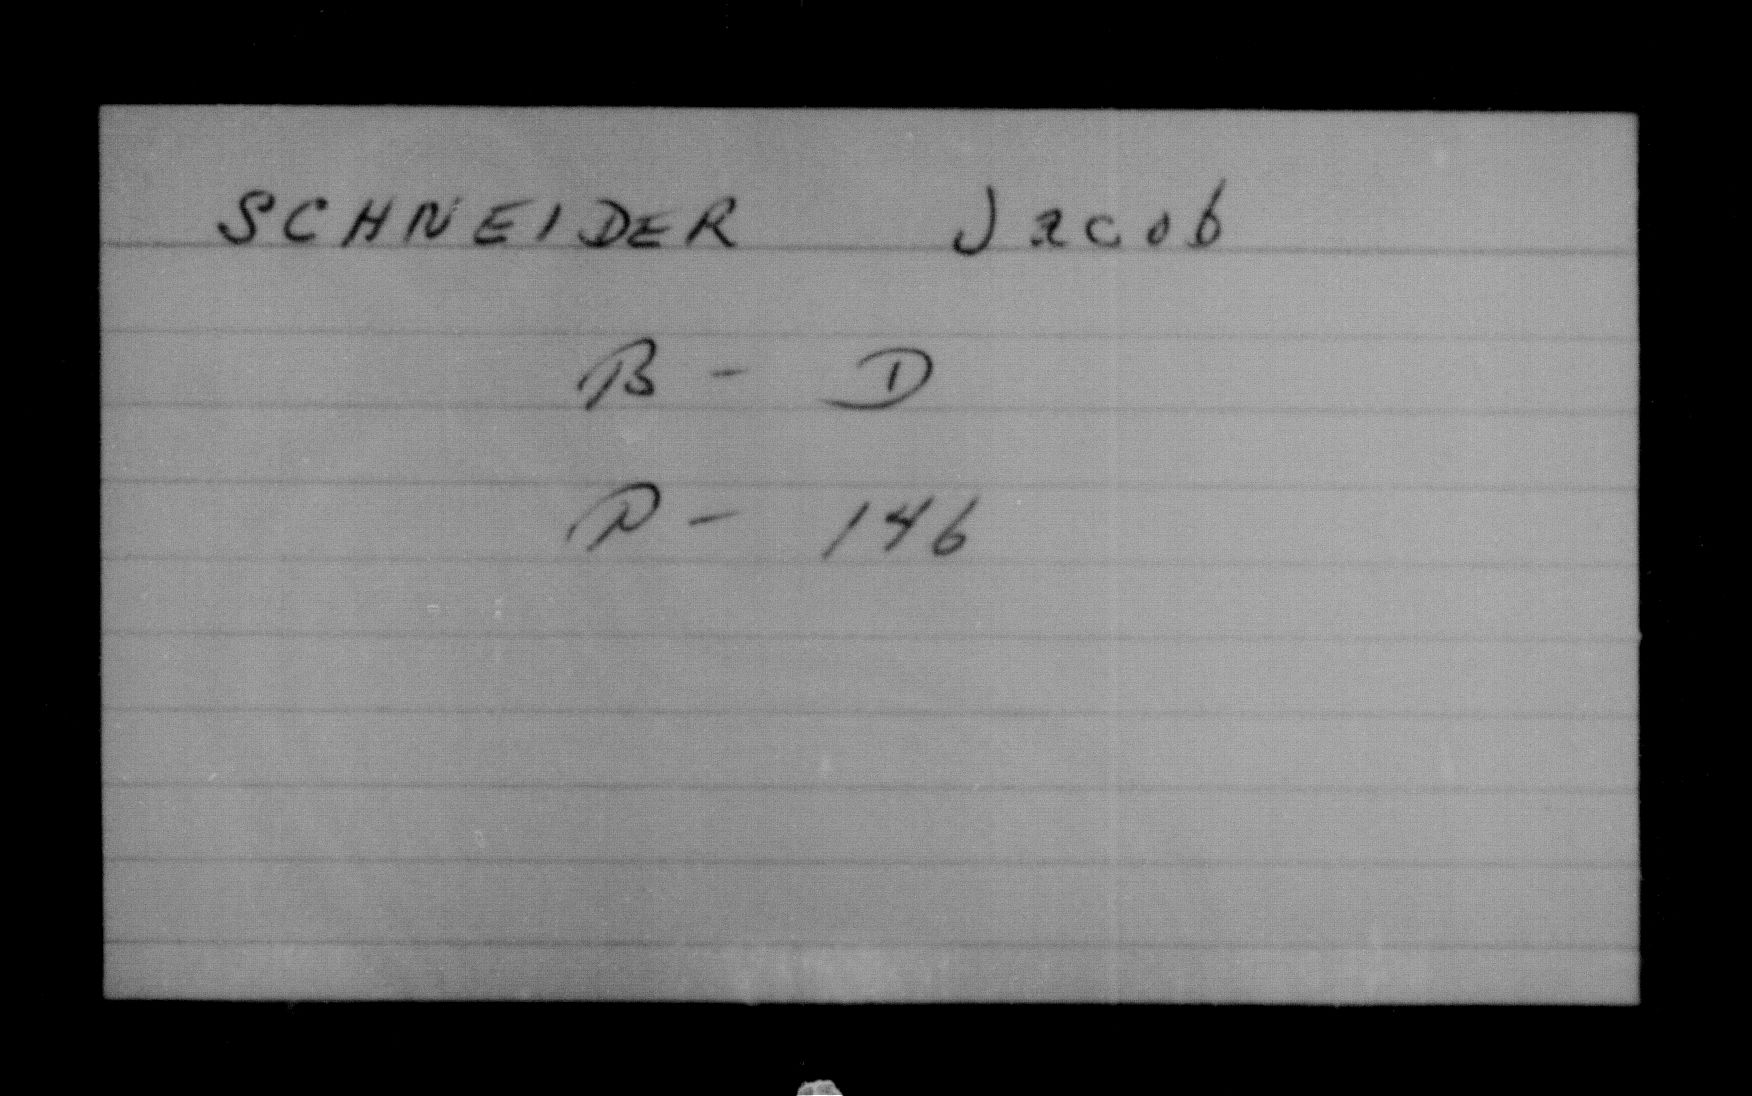 SCHNEIDER Jacob
B - D
P - 146